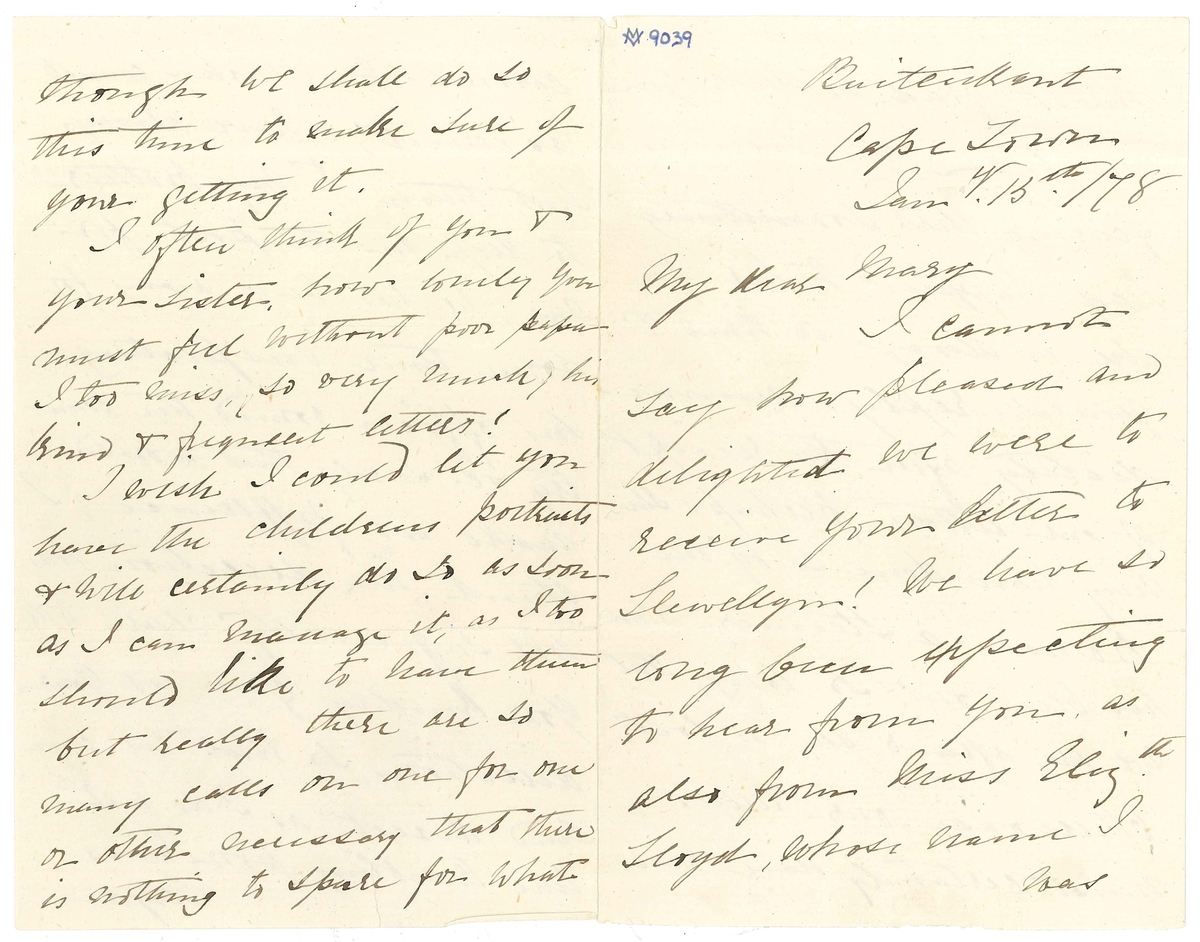 9039
Buitenkant
Cape Town
Jany. 15th/78
My dear Mary
I cannot
say how pleased and
delighted we were to
receive your letter to
Llewellyn! We have so
long been expecting
to hear from you, as
also from Miss Elizth.
Lloyd, whose name I
was
though we shall do so
this time to make sure of
your getting it.
I often think of you &
your sister, how lonely you
must feel without poor papa
I too miss, so very much, his
kind & frequent letters!
I wish I could let you
have the childrens portraits
& will certainly do so as soon
as I can manage it, as I too
should like to have them
but really there are so
many calls on one for one
or other necessary that there
is nothing to spare for what